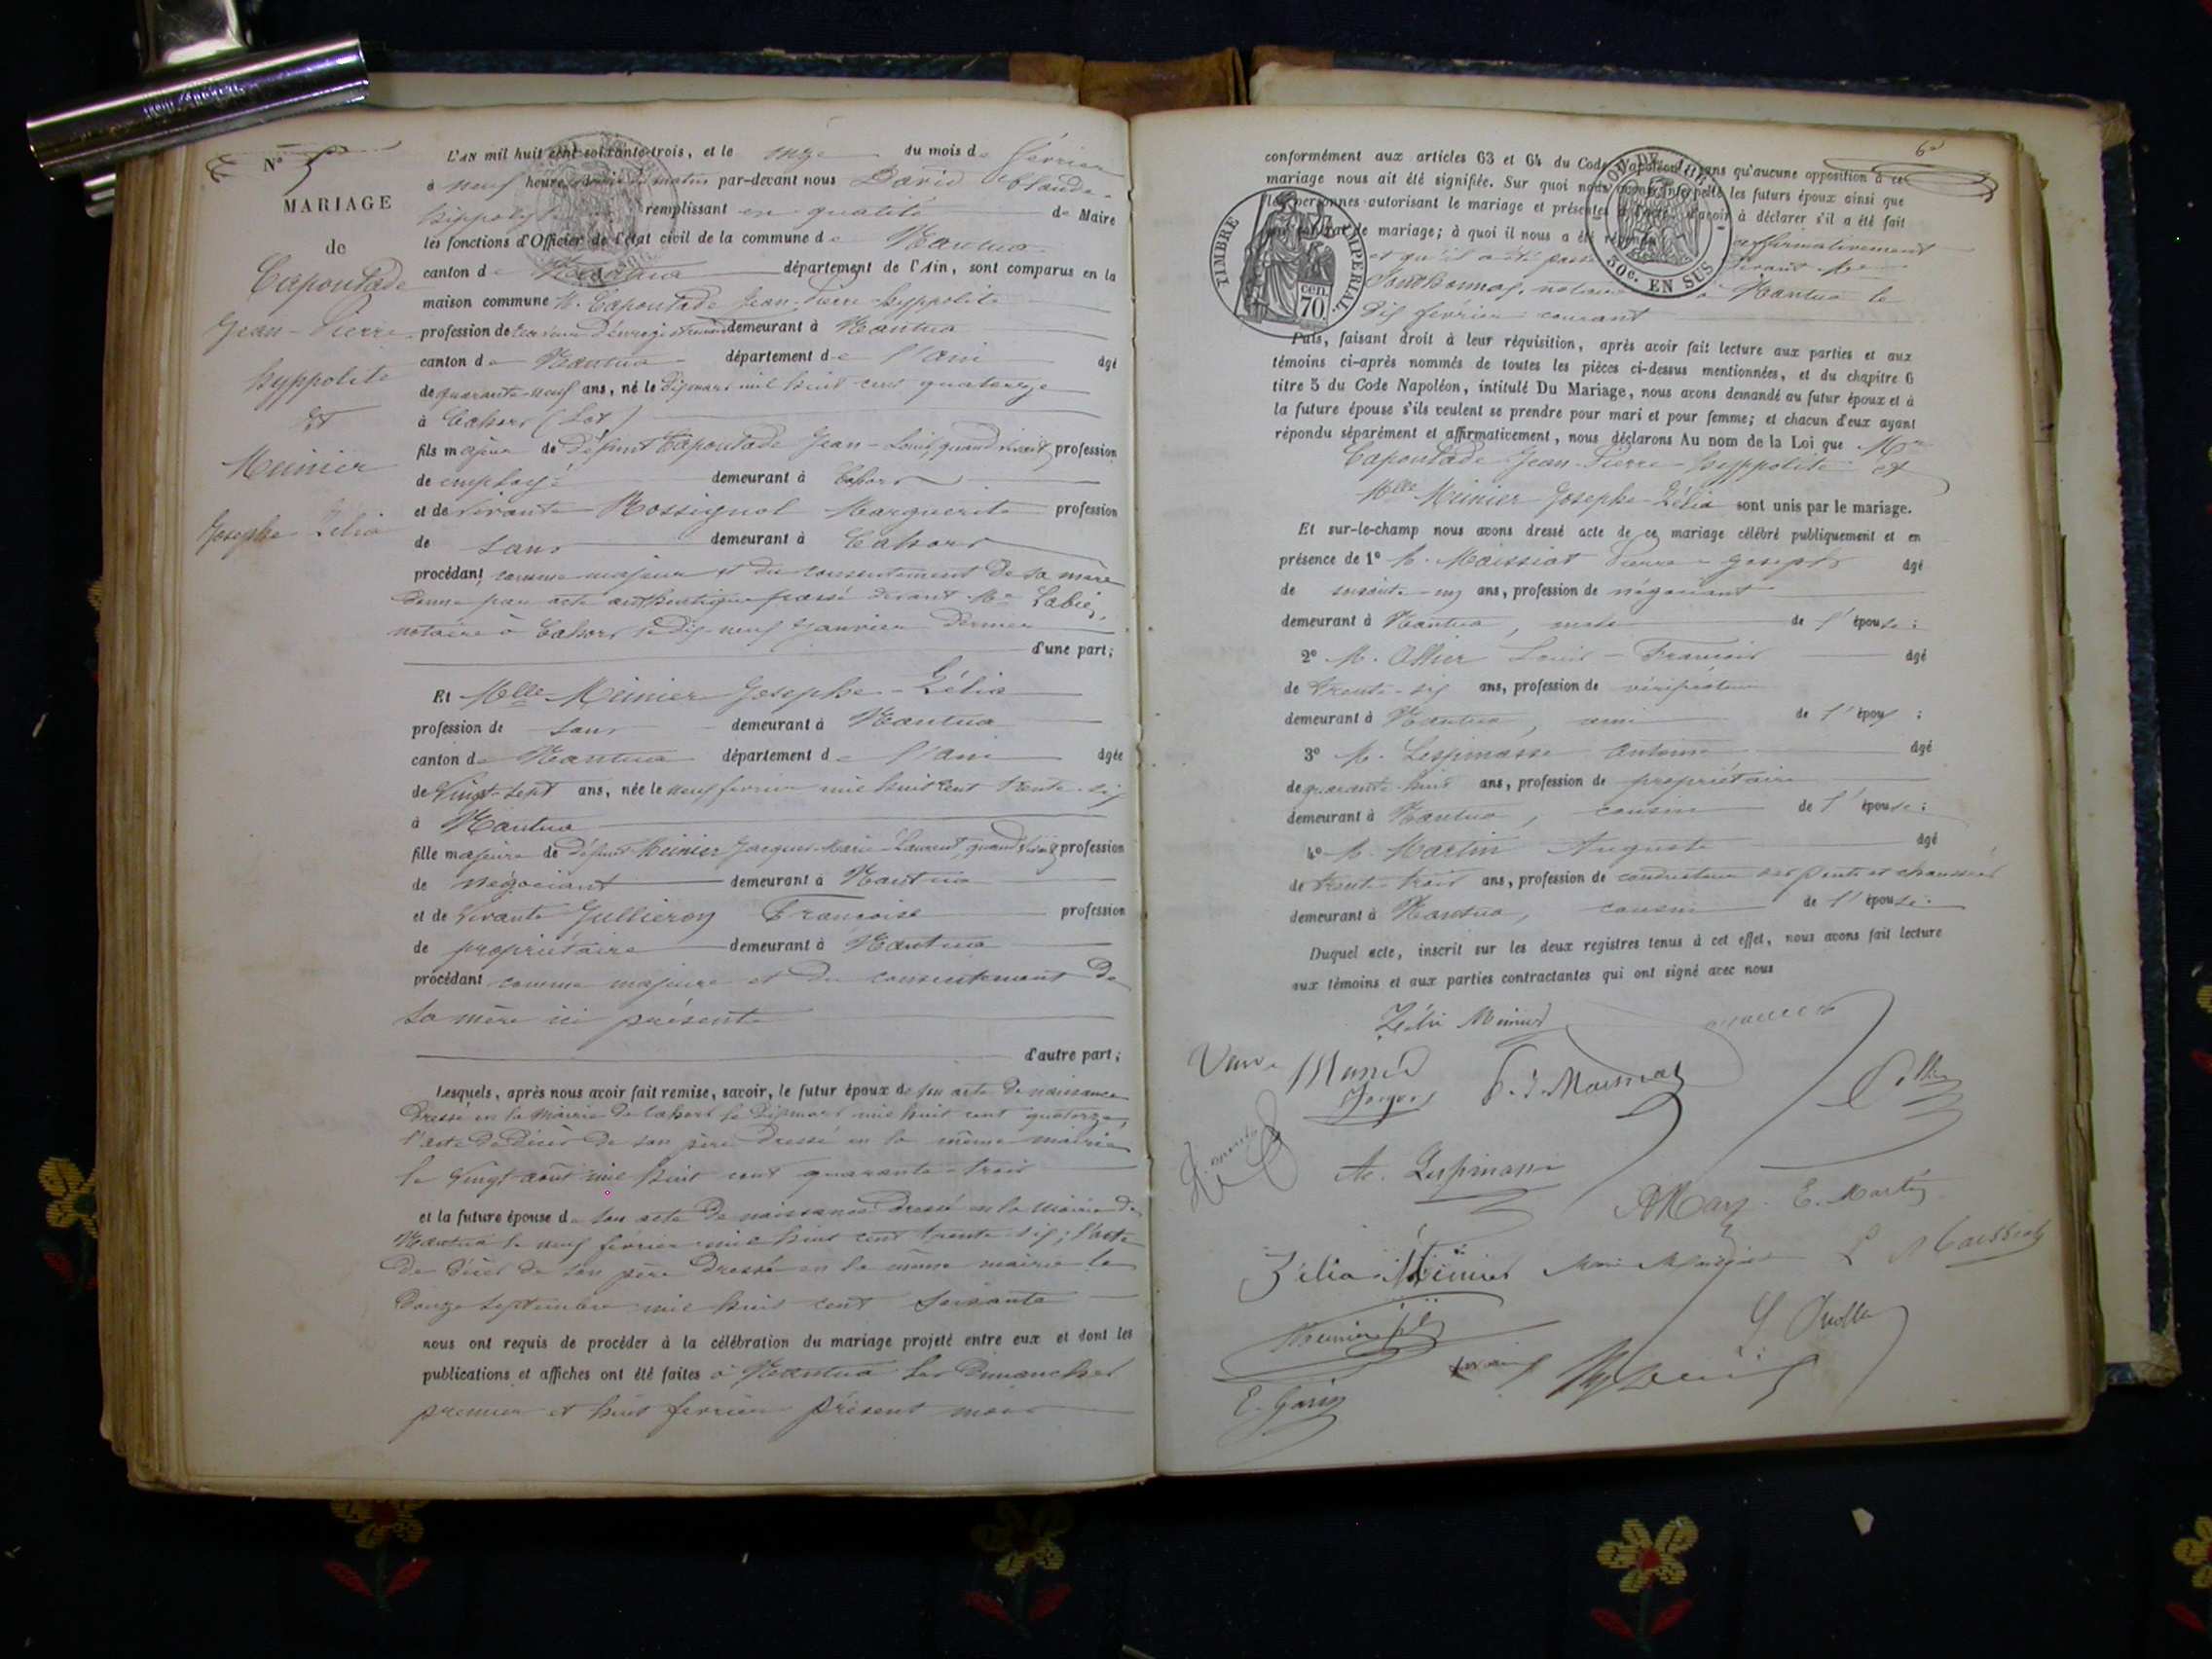 N° 5
MARIAGE
de
Capoulade
Jean-Pierre
hyppolite
et
Meinier
Josephe Zélia
L'AN mil huit cent soixante-trois, et le onze du mois de février
à neuf heures du matin par-devant nous David Claude-
hippolyte remplissant en qualité de Maire
les fonctions d'Officier de l'état civil de la commune de Nantua
canton de Nantua département de l'Ain, sont comparus en la
maison commune M. Capoulade Jean-Pierre-hyppolite
profession de demeurant à Nantua
canton de Nantua département de l'ain âgé
de quarante-neuf ans, né le dix mars mil huit cent quatorze
à Cahors (Lot)
fils majeur de défunt Capoulade Jean-Louis, quand vivait profession
de employé demeurant à Cahors
et de vivante Rossignol Marguerite profession
de sans demeurant à Cahors
procédant comme majeur et du consentement de sa mère
donné par acte authentique passé devant Me Labie,
notaire à Cahors le dix-neuf janvier dernier
d'une part;
Et Mlle Meinier Josephe-Zélia
profession de sans demeurant à Nantua
canton de Nantua département de l'ain âgée
de vingt-sept ans, née le neuf février mil huit cent trente-six
à Nantua
fille majeure de défunt Meinier Jacques-Marie-Laurent, quand vivait profession
de négociant demeurant à Nantua
et de vivante Jullieron Françoise profession
de propriétaire demeurant à Nantua
procédant comme majeure et du consentement de
sa mère ici présente
d'autre part;
Lesquels, après nous avoir fait remise, savoir, le futur époux de son acte de naissance
dressé en la mairie de Cahors le dix mars mil huit cent quatorze,
l'acte de décès de son père dressé en la même mairie
le vingt août mil huit cent quarante-trois
et la future épouse de son acte de naissance dressé en la mairie de
Nantua le neuf février mil huit cent trente-six; l'acte
de décès de son père dressé en la même mairie le
douze septembre mil huit cent soixante
nous ont requis de procéder à la célébration du mariage projeté entre eux et dont les
publications et affiches ont été faites à Nantua les dimanches
premier et huit février présent mois
conformément aux articles 63 et 64 du Code Napoléon, sans qu'aucune opposition à ce
mariage nous ait été signifiée. Sur quoi nous avons interpellé les futurs époux ainsi que
les personnes autorisant le mariage et présentes à l'acte, d'avoir à déclarer s'il a été fait
de mariage; à quoi il nous a été répondu affirmativement
et qu'il a été passé devant Me
notaire à Nantua le
dix février courant
TIMBRE IMPERIAL
70 cen.
30c. EN SUS
Puis, faisant droit à leur réquisition, après avoir fait lecture aux parties et aux
témoins ci-après nommés de toutes les pièces ci-dessus mentionnées, et du chapitre 6
titre 5 du Code Napoléon, intitulé Du Mariage, nous avons demandé au futur époux et à
la future épouse s'ils veulent se prendre pour mari et pour femme; et chacun d'eux ayant
répondu séparément et affirmativement, nous déclarons Au nom de la Loi que Mr
Capoulade Jean-Pierre-hyppolite et
Mlle Meinier Josephe-Zélia sont unis par le mariage.
Et sur-le-champ nous avons dressé acte de ce mariage célébré publiquement et en
présence de 1° M. Maissiat Pierre-Joseph âgé
de ans, profession de négociant
demeurant à Nantua, de l'épouse;
2° M. Ollier Louis-François âgé
de trente-six ans, profession de vérificateur
demeurant à Nantua, ami de l'époux;
3° M. Lespinasse Antoine âgé
de quarante-huit ans, profession de propriétaire
demeurant à Nantua, cousin de l'épouse;
4° M. Martin Auguste âgé
de trente-trois ans, profession de conducteur des ponts et chaussées
demeurant à Nantua, cousin de l'épouse.
Duquel acte, inscrit sur les deux registres tenus à cet effet, nous avons fait lecture
aux témoins et aux parties contractantes qui ont signé avec nous
Zélie Meinier
P. J. Maissiat
Ollier
A. Lespinasse
E. Martin
Zélia Meinier
L Maissiat
Meinier fils
E. Garin